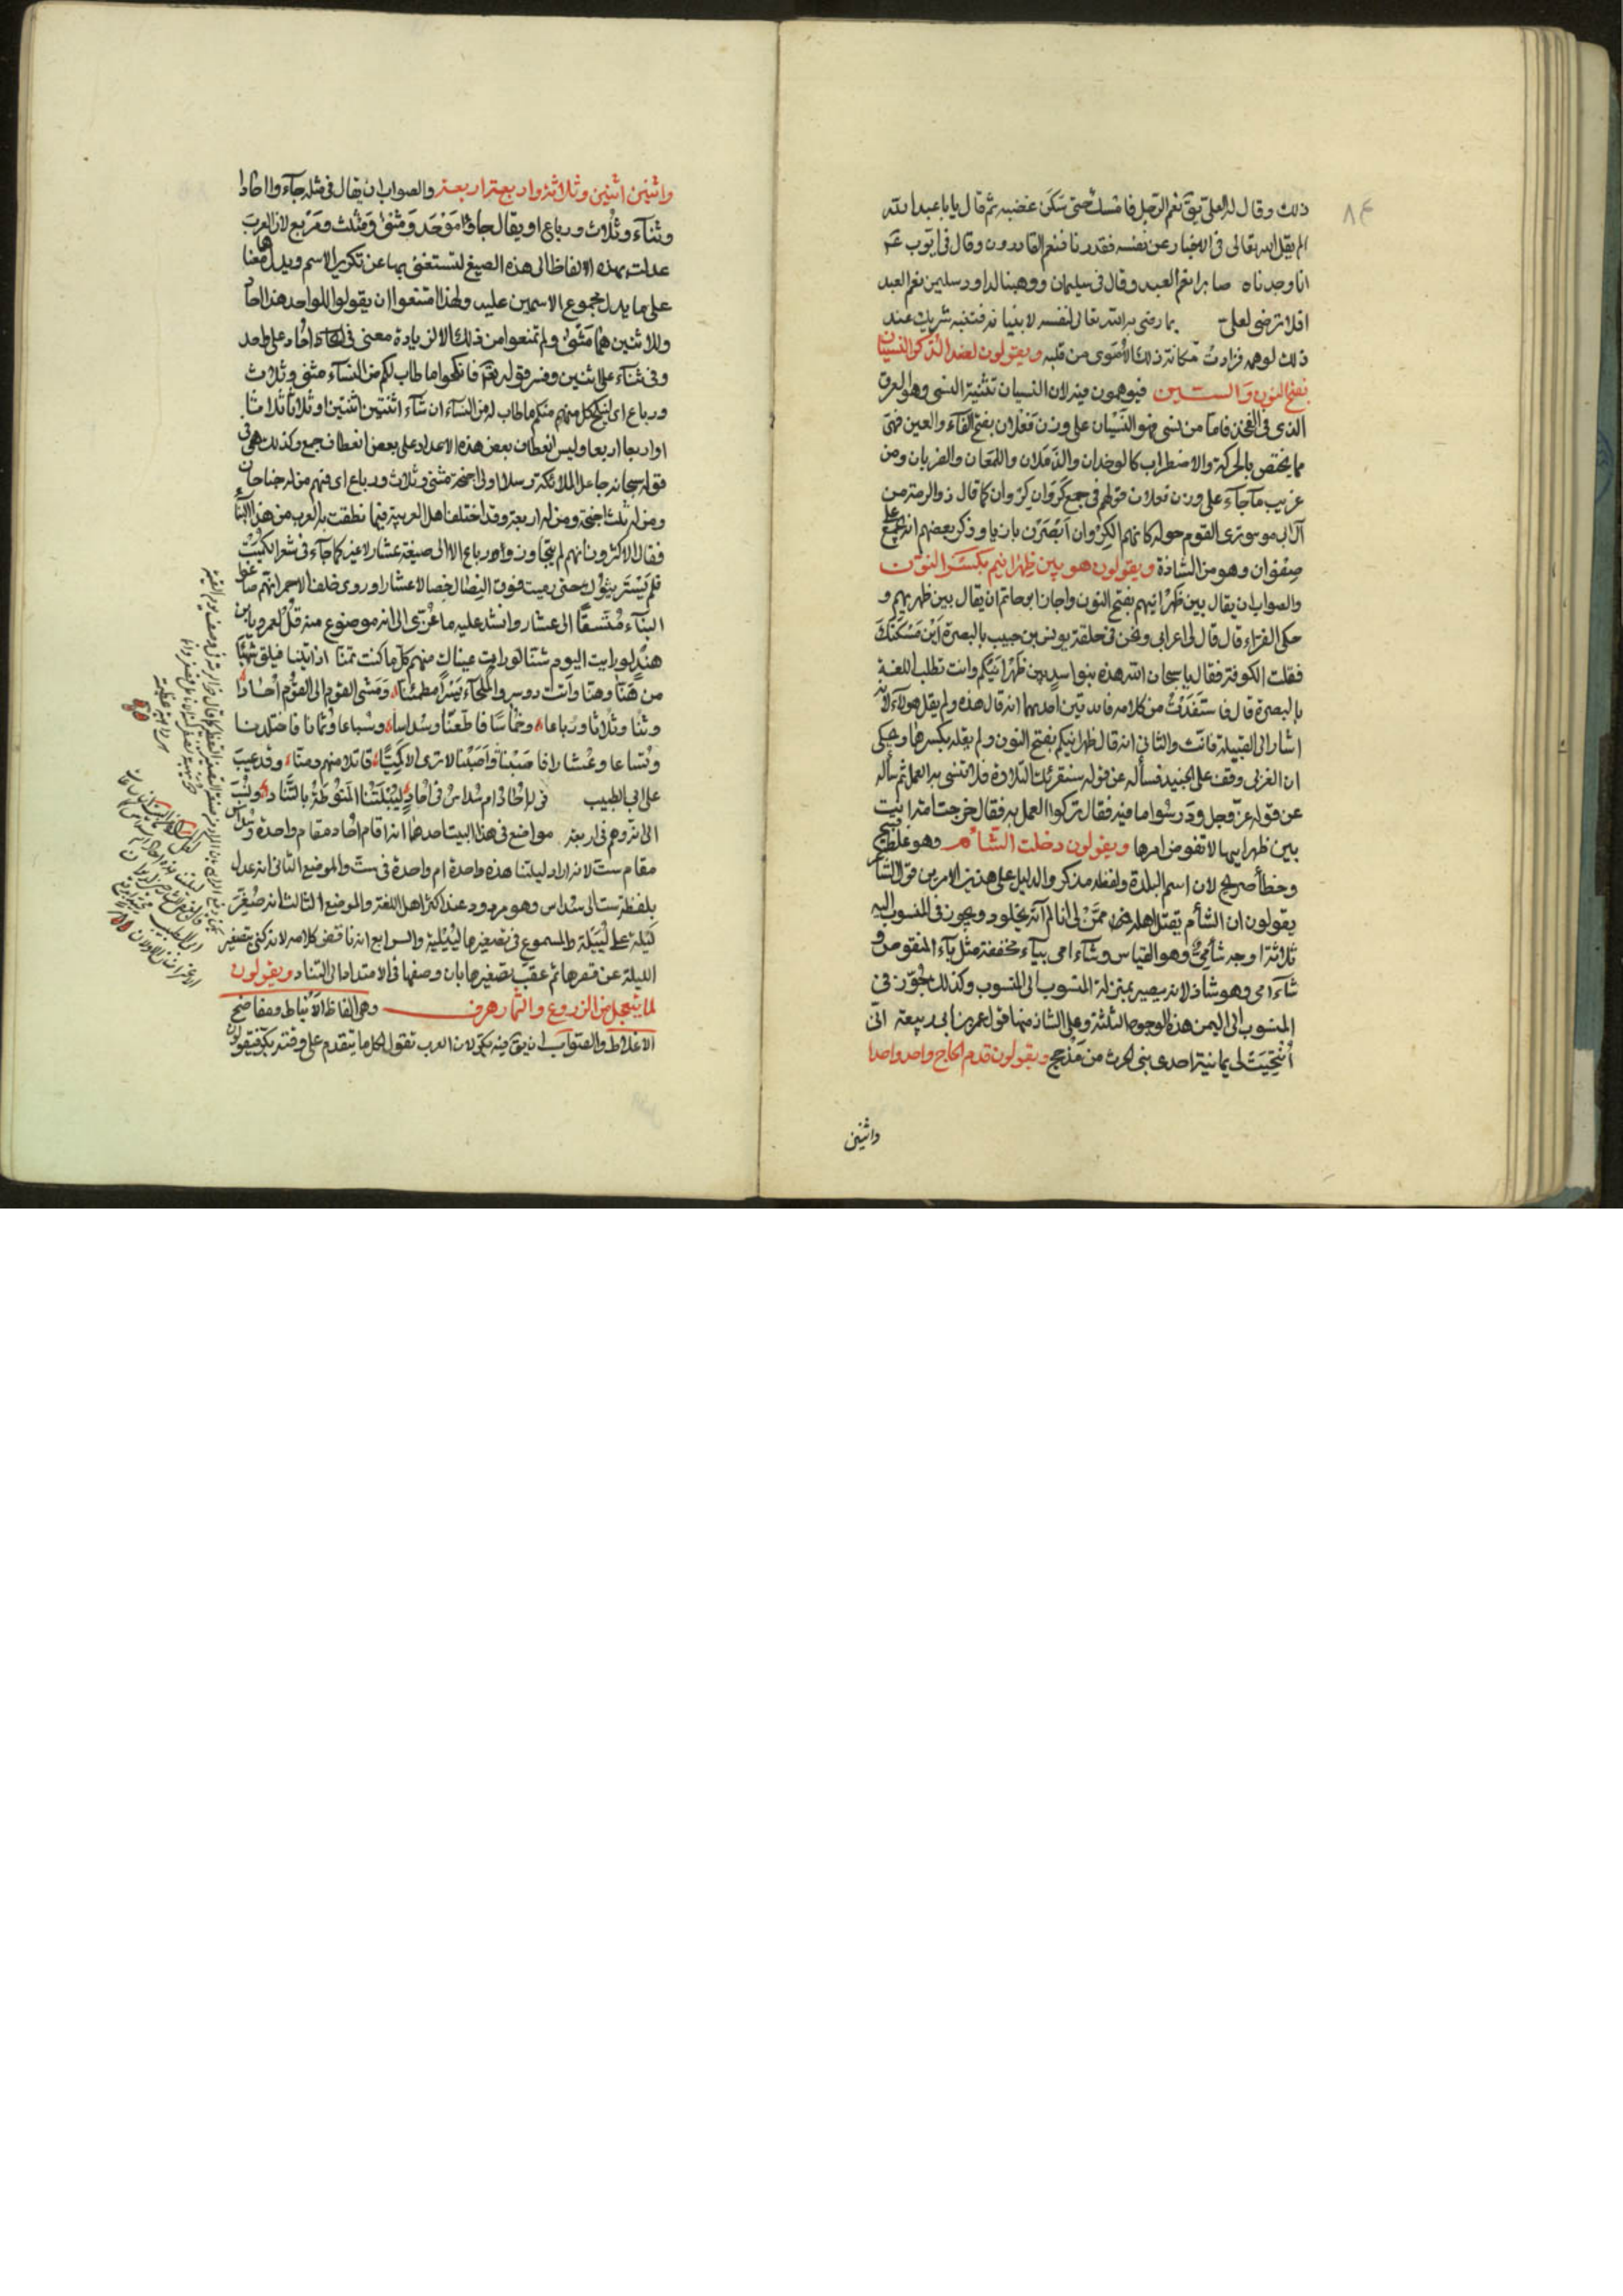 ٨٤
ذلك وقال له العلي يق نعم الرجل فامسك حتى سكن غضبه ثم قال يا با عبد الله
الم يقل الله تعالى في الاخبار عن نفسه فقدرنا فنعم القادرون وقال في ايوب
انا وجدناه صابرا نعم العبد وقال في سليمان ووهبنا لداود سليمن نعم العبد
افلا ترضى لعلي بما رضى به الله تعالى لنفسه لانبيا فتنبه شريك عند
ذلك لوهمه فزادت مكانة ذلك الاموى من قلبه ويقولون لضد الذكر النسيان
بفتح النون والسين فيوهمون فيه لان النسيان تثنية النسى وهو العرق
الذى في الفخذ فاما من نسى فهو النسيان على وزن فعلان بفتح الفاء والعين فهى
مما يختص بالحركة والاضطراب كالوخدان والذملان واللمعان والضربان ومن
غريب ما جاء على وزن فعلان قولهم في جمع كروان كروان كما قال ذو الرمة من
آل ابى موسى ترى القوم حوله كانهم الكروان ابصرن بازيا وذكر بعضهم انه جمع على
صفوان وهو من الشاذة ويقولون هو بين ظهرانيهم بكسر النون
والصواب ان يقال بين ظهرانيهم بفتح النون واجاز ابو حاتم ان يقال بين ظهريهم و
حكى الفراء قال قال لى اعرابى ونحن في حلقة يونس بن حبيب بالبصرة اين مسكنك
فقلت الكوفة فقال يا سبحان الله هذه بنو اسد بين ظهرانيكم وانت تطلب اللغة
بالبصرة قال فاستفدت من كلامه فائدتين احدهما انه قال هذه ولم يقل هولاء لانه
اشار الى القبيلة فانث والثانى انه قال ظهرانيكم بفتح النون ولم يقله بكسرها وحكى
ان وقف على الجنيد فسأله عن قوله سنقرئك التلاوة فلا تنسى به العمل ثم سأله
عن قوله عز وجل ودرسوا ما فيه فقال تركوا العمل به فقال خرجت امة انت
بين ظهرانيها لا تفوض امرها ويقولون دخلت الشأم وهو غلط قبيح
وخطأ صريح لان اسم البلدة ولفظه مذكر والدليل على هذين الامرين قول الشاعر
يقولون ان الشأم يقتل اهله فمن لى ان لم آته بخلود ويجوز في المنسوب اليه
ثلاثة اوجه شأمى وهو القياس وشاءامى بياء مخففة مثل ياء المنقوص و
شاءامى وهو شاذ لانه يصير بمنزلة المنسوب الى المنسوب وكذلك جوز في
المنسوب الى اليمن هذه الوجوه الثلثة وعلى الشاذ منها قول عمر بن ابى ربيعة انى
اتيحت لى يمانية احدى بنى الحرث من مذحج ويقولون قدم الحاج واحدا واحدا
واثنين
واثنين اثنين وثلاثة واربعة اربعة والصواب ان يقال في مثله جاءوا احادا
وثناء وثلاث ورباع او يقال جاوا موحد ومثنى ومثلث ومربع لان العرب
عدلت بهذه الالفاظ الى هذه الصيغ لتستغنى بها عن تكرير الاسم ويدل معناها
على ما يدل مجموع الاسمين عليه ولهذا امتنعوا ان يقولوا للواحد هذا احاد
وللاثنين هما مثنى ولم تمنعوا من ذلك الا لزيادة معنى في احاد على واحد
وفي ثناء على اثنين وفسر قوله تعالى فانكحوا ما طاب لكم من النساء مثنى وثلاث
ورباع اى لينكح كل منهم منكم ما طاب له من النساء ان شاء اثنتين اثنتين او ثلاثا ثلاثا
او اربعا اربعا وليس انعطاف بعض هذه الاعداد على بعض انعطاف جمع وكذلك هى في
قوله سبحانه جاعل الملائكة رسلا اولى اجنحة مثنى وثلاث ورباع اى فمنهم من له جناحان
ومن له ثلث اجنحة ومن له اربعة وقد اختلف اهل العربية فيما نطقت به العرب من هذا البناء
فقال الاكثرون انهم لم يتجاوزوا رباع الا الى صيغة عشار لا غير كما جاء في شعر الكميت
فلم يستريثوك حتى رميت فوق النصال خصالا عشارا وروى خلف الاحمر انهم صاغوا
البناء متسقا الى عشار وانشد عليه ما عزى الى انه موضوع منه قل لعمرو يا بن
هند لو رايت اليوم شنا لو رايت عيناك منهم كل ما كنت تمنا اذ اتينا فيلق شهبا
من هنا وهنا واتت دوسر والملحاء سيرا مطمئنا ومشى القوم الى القوم احادا
وثنا وثلاثا ورباعا وخماسا فاطعنا وسداسا وسباعا وثمانا فاختلدنا
وتساعا وعشارا فاصبنا واصبنا لا ترى الا كميا قاتلا منهم ومنا وقد عيب
على ابى الطيب في احاد ام سداس في احاد لييلتنا المنوطة بالتناد ونسب
الى انه وهم في اربعة مواضع في هذا البيت احدها انه اقام احاد مقام واحدة وسداس
مقام ست لانه اراد ليلتنا هذه واحدة ام واحدة في ست والموضع الثانى انه عدل
بلفظة ست الى سداس وهو مردود عند اكثر اهل اللغة والموضع الثالث انه صغر
ليلة على لييلة والمسموع في تصغيرها لييلية والرابع انه ناقض كلامه لانه كنى بتصغير
الليلة عن قصرها ثم عقب تصغيرها بان وصفها في الامتداد الى التناد ويقولون
لما يتعجل من الزروع والثمار هرف وهى الفاظ الانباط ومفاضح
الاغلاط والصواب ان يقال فيه بكر لان العرب تقول لكل ما يتقدم على وقته بكر فيقولون